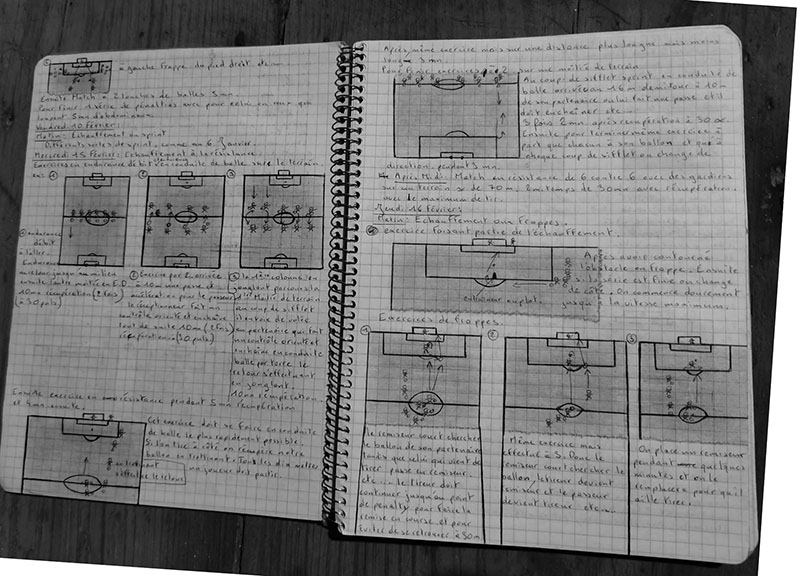 à gauche frappe du pied droit etc...
Ensuite Match à 2 touches de balles 5 mn
Pour finir 1 série de penalties avec pour celui ou ceux qui
loupent 5 mn d'abdominaux
Vendredi 10 Février:
Matin: Echauffement en sprint
Différents sortes de sprint, comme au 6 Janvier
Mercredi 15 Février: Echauffement à la résistance.
Exercices en endurance début sur le terrain
en: 1 2 3
endurance
début
à taller.
milieu
10 mn récupération (2 fois)
à 30 puls)
2 Exercice par 2 arrivée
à 10 m une passe et
accélération pour le passeur
le récupérateur fait un
contrôle orienté et enchaîne
tout de suite 10 mn (2 fois)
3 la 1ère colonne en
jonglant parcours la
1ère Moitié de terrain
au coup de sifflet
il passe de volée
au partenaire qui fait
un contrôle orienté et
enchaîne en conduite
balle par terre le
retour s'effectuant
en jonglant.
10 mn récupération
Ensuite exercice en résistance pendant 5 mn récupération
et 4 mn ensuite.
Cet exercice doit se faire en conduite
de balle le plus rapidement possible.
on récupère notre
ballon en trottinant. Tous les dix mètres
un joueur de partie.
en trottinant
effectue le retour
Après, même exercice mais sur une distance plus longue mais moins
long 3 mn
Pour finir exercices à 2 sur une moitié de terrain
Au coup de sifflet sprint en conduite de
balle arrivé aux 16 m demi tour à 10 m
de son partenaire on lui fait une passe et il
doit enchaîner etc...
5 fois 2 mn. après récupération à 30 sec
Ensuite pour terminer même exercice à
part que chacun a son ballon et qu'à
chaque coup de sifflet on change de
direction. pendant 3 mn
Après Midi: Match en résistance de 6 contre 6 avec des gardiens
sur un terrain de 70 m. 2 mi temps de 30 mn avec récupération.
avec le maximum de tir.
Jeudi 16 Février:
Matin: Echauffement aux frappes.
exercice faisant partie de l'échauffement.
Après avoir contourné
l'obstacle on frappe. Ensuite
si la série est finie on change
de côté. On commence doucement
jusqu'à la vitesse maximum.
entraîneur ou plot
Exercices de frappes
1 2 3
Le remiseur court chercher
le ballon de son partenaire
tandis que celui qui vient de
tirer passe au remiseur.
etc... le tireur doit
continuer jusqu'au point
de penalty pour faire la
remise en course et pour
éviter de se retrouver à 30 m
Même exercice mais
effectué à 3. Donc le
remiseur court chercher le
ballon, le tireur devient
remiseur et le passeur
devient tireur etc...
On place un remiseur
pendant quelques
minutes et on le
remplacera pour qu'il
aille tirer.